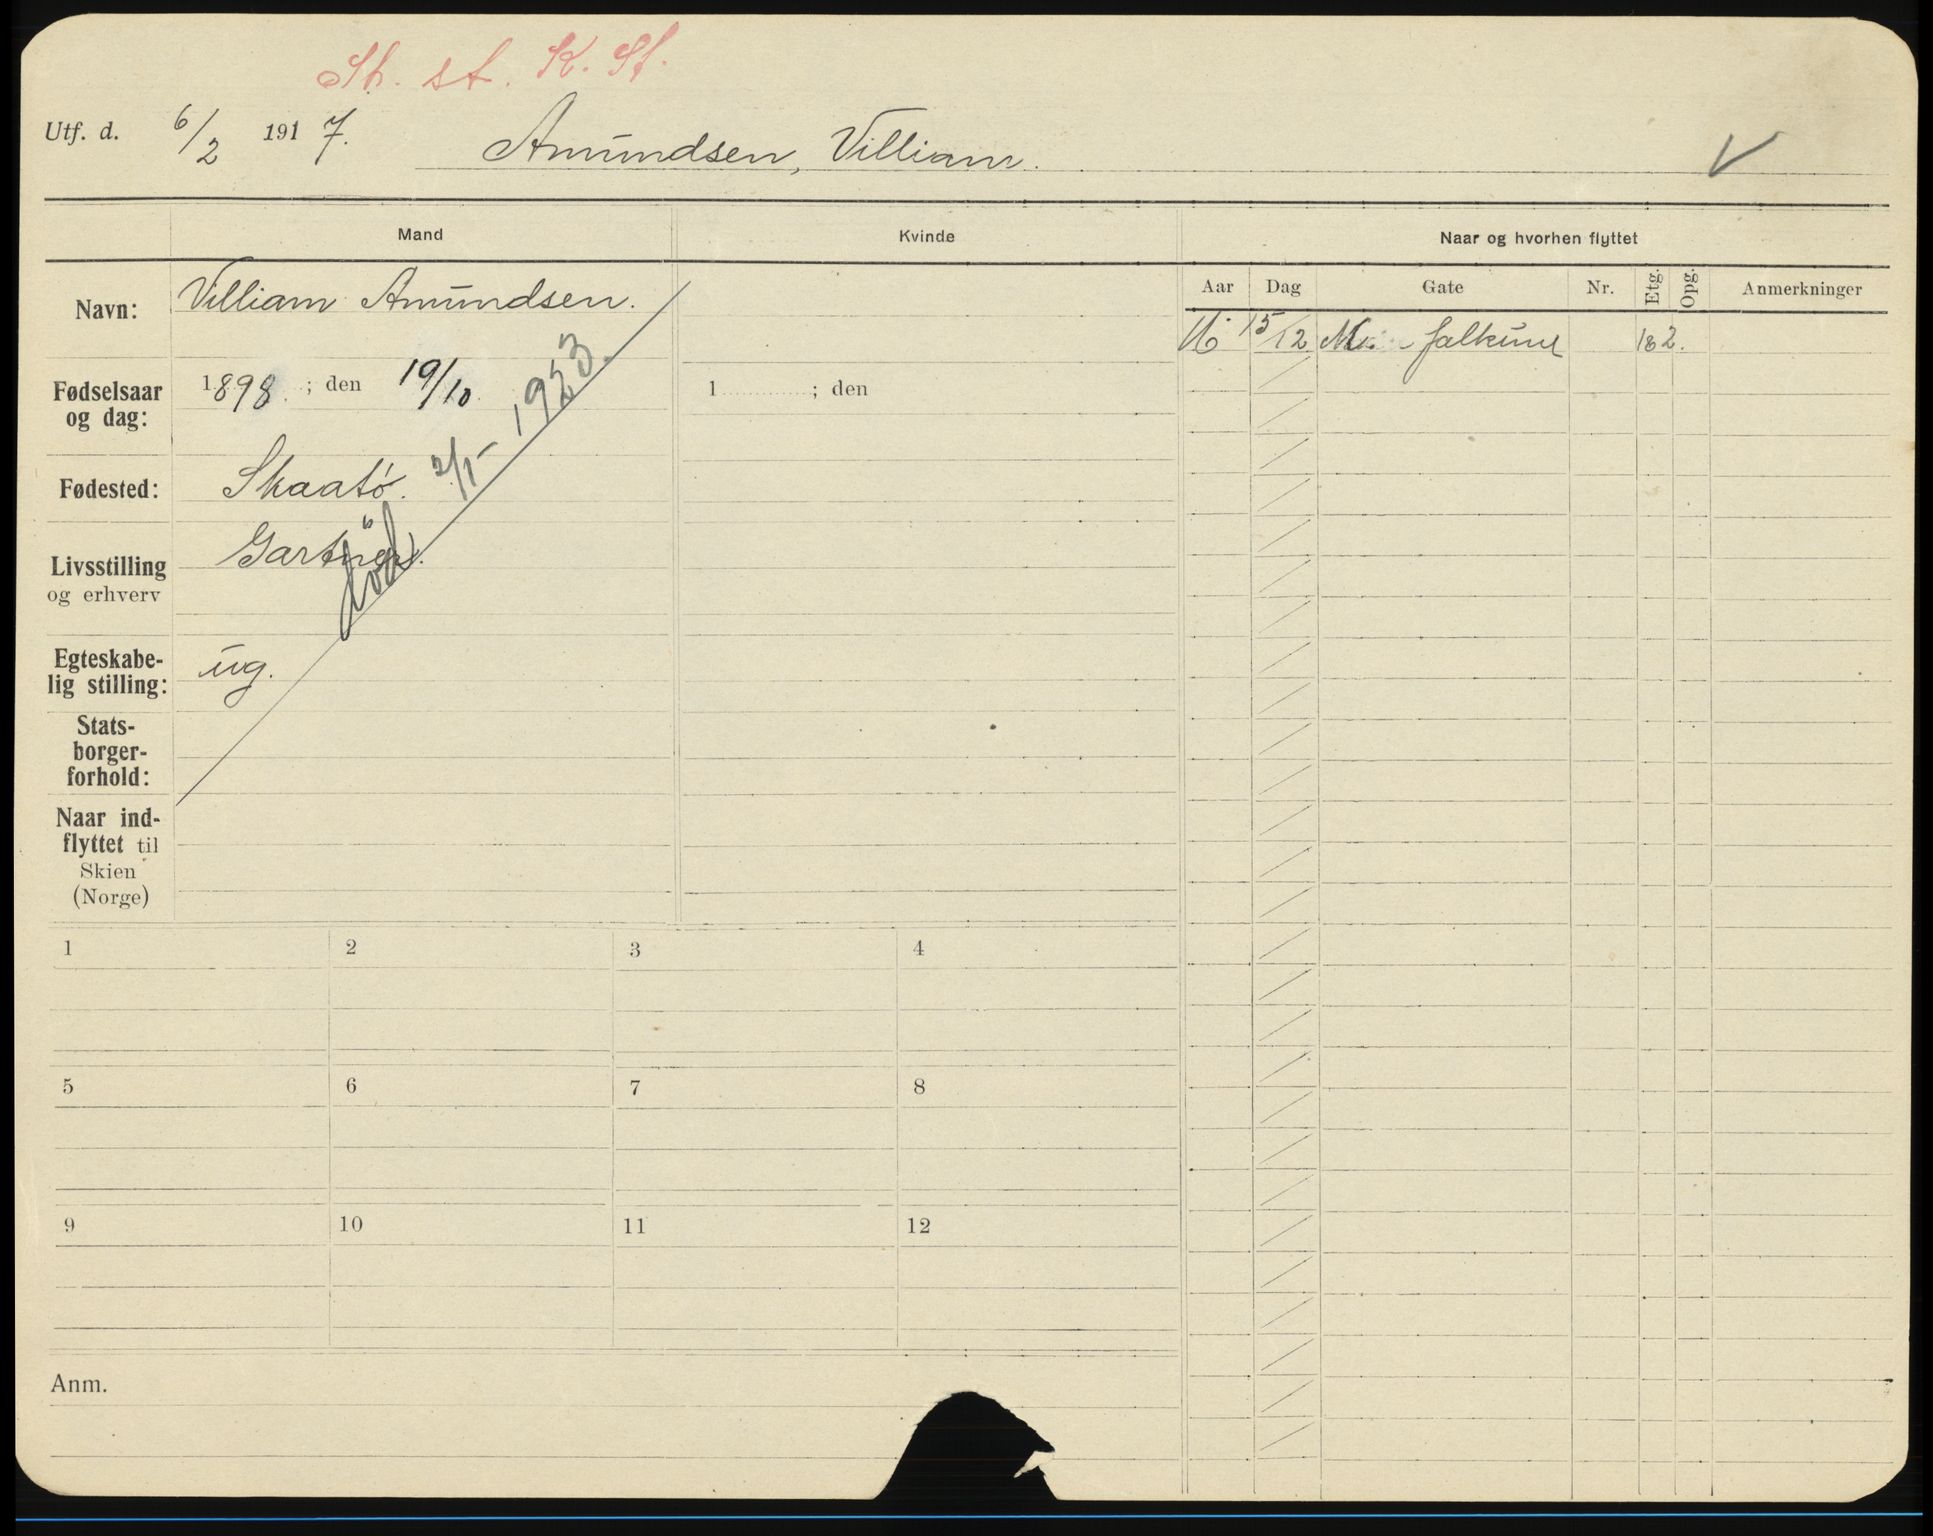 Sk. st. K. St.
Utf. d. 6/2 1917. Amundsen, Villiam. V
Mand Kvinde Naar og hvorhen flyttet
Navn: Villiam Amundsen.
Aar Dag Gate Nr. Etg. Opg. Anmerkninger
15 12 falkum 182.
Fødselsaar og dag: 1898 ; den 19/10. 1 ; den
Fødested: Skaatö. 2/5 1923.
Livsstilling og erhverv Gartner.
död
Egteskabe-
lig stilling: ug.
Stats-
borger-
forhold:
Naar ind-
flyttet til
Skien
(Norge)
1 2 3 4
5 6 7 8
9 10 11 12
Anm.